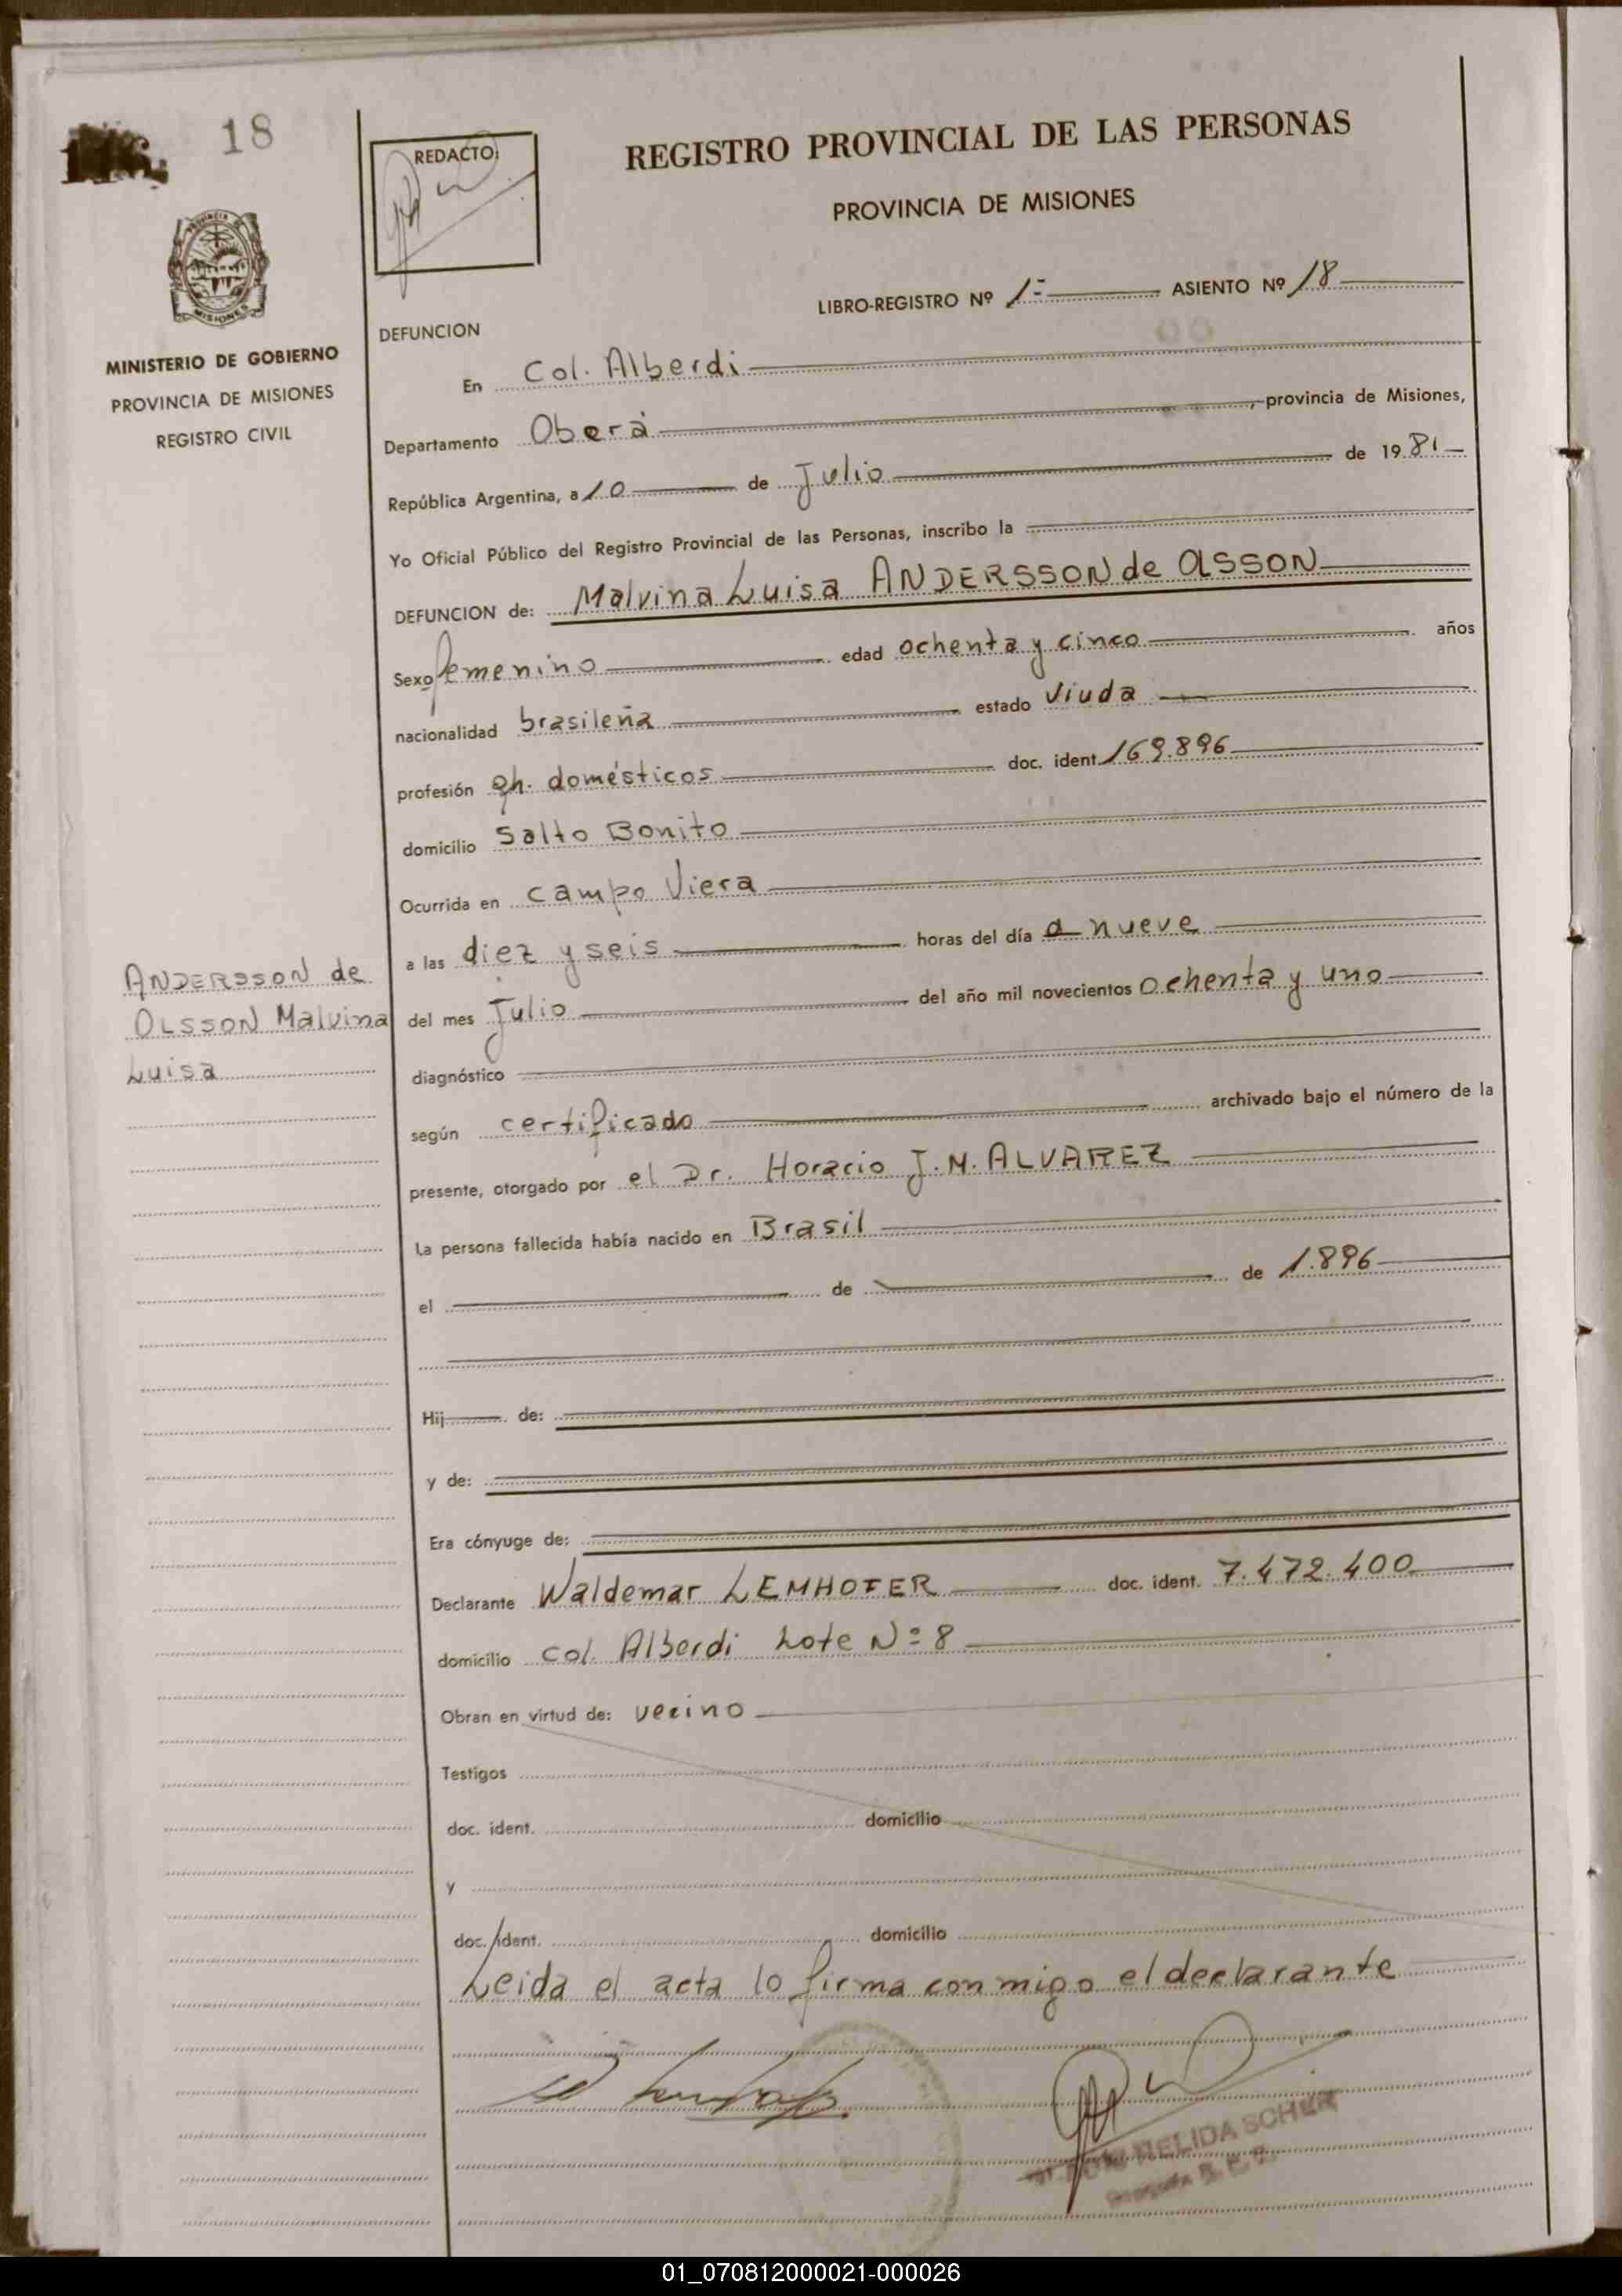 18
REDACTO:
REGISTRO PROVINCIAL DE LAS PERSONAS
PROVINCIA DE MISIONES
LIBRO-REGISTRO Nº 1- ASIENTO Nº 18
MISIONES
MINISTERIO DE GOBIERNO
PROVINCIA DE MISIONES
REGISTRO CIVIL
DEFUNCION
En Col. Alberdi
Departamento Oberá, provincia de Misiones,
República Argentina, a 10 de Julio de 1981
Yo Oficial Público del Registro Provincial de las Personas, inscribo la
DEFUNCION de: Malvina Luisa ANDERSSON de OLSSON
Sexo femenino edad ochenta y cinco años
nacionalidad brasileña estado viuda
profesión qh. domésticos doc. ident. 169.896
domicilio Salto Bonito
Ocurrida en Campo Viera
a las diez y seis horas del día a nueve
ANDERSSON de
OLSSON Malvina
Luisa
del mes Julio del año mil novecientos ochenta y uno
diagnóstico
según certificado archivado bajo el número de la
presente, otorgado por el Dr. Horacio J.M. ALVAREZ
La persona fallecida había nacido en Brasil
el de de 1.896
Hij de:
y de:
Era cónyuge de:
Declarante Waldemar LEMHOFER doc. ident. 7.472.400
domicilio col. Alberdi Lote Nº 8
Obran en virtud de: vecino
Testigos
doc. ident. domicilio
y
doc. ident. domicilio
Leida el acta lo firma conmigo el declarante
NELIDA SCHER
01_070812000021-000026